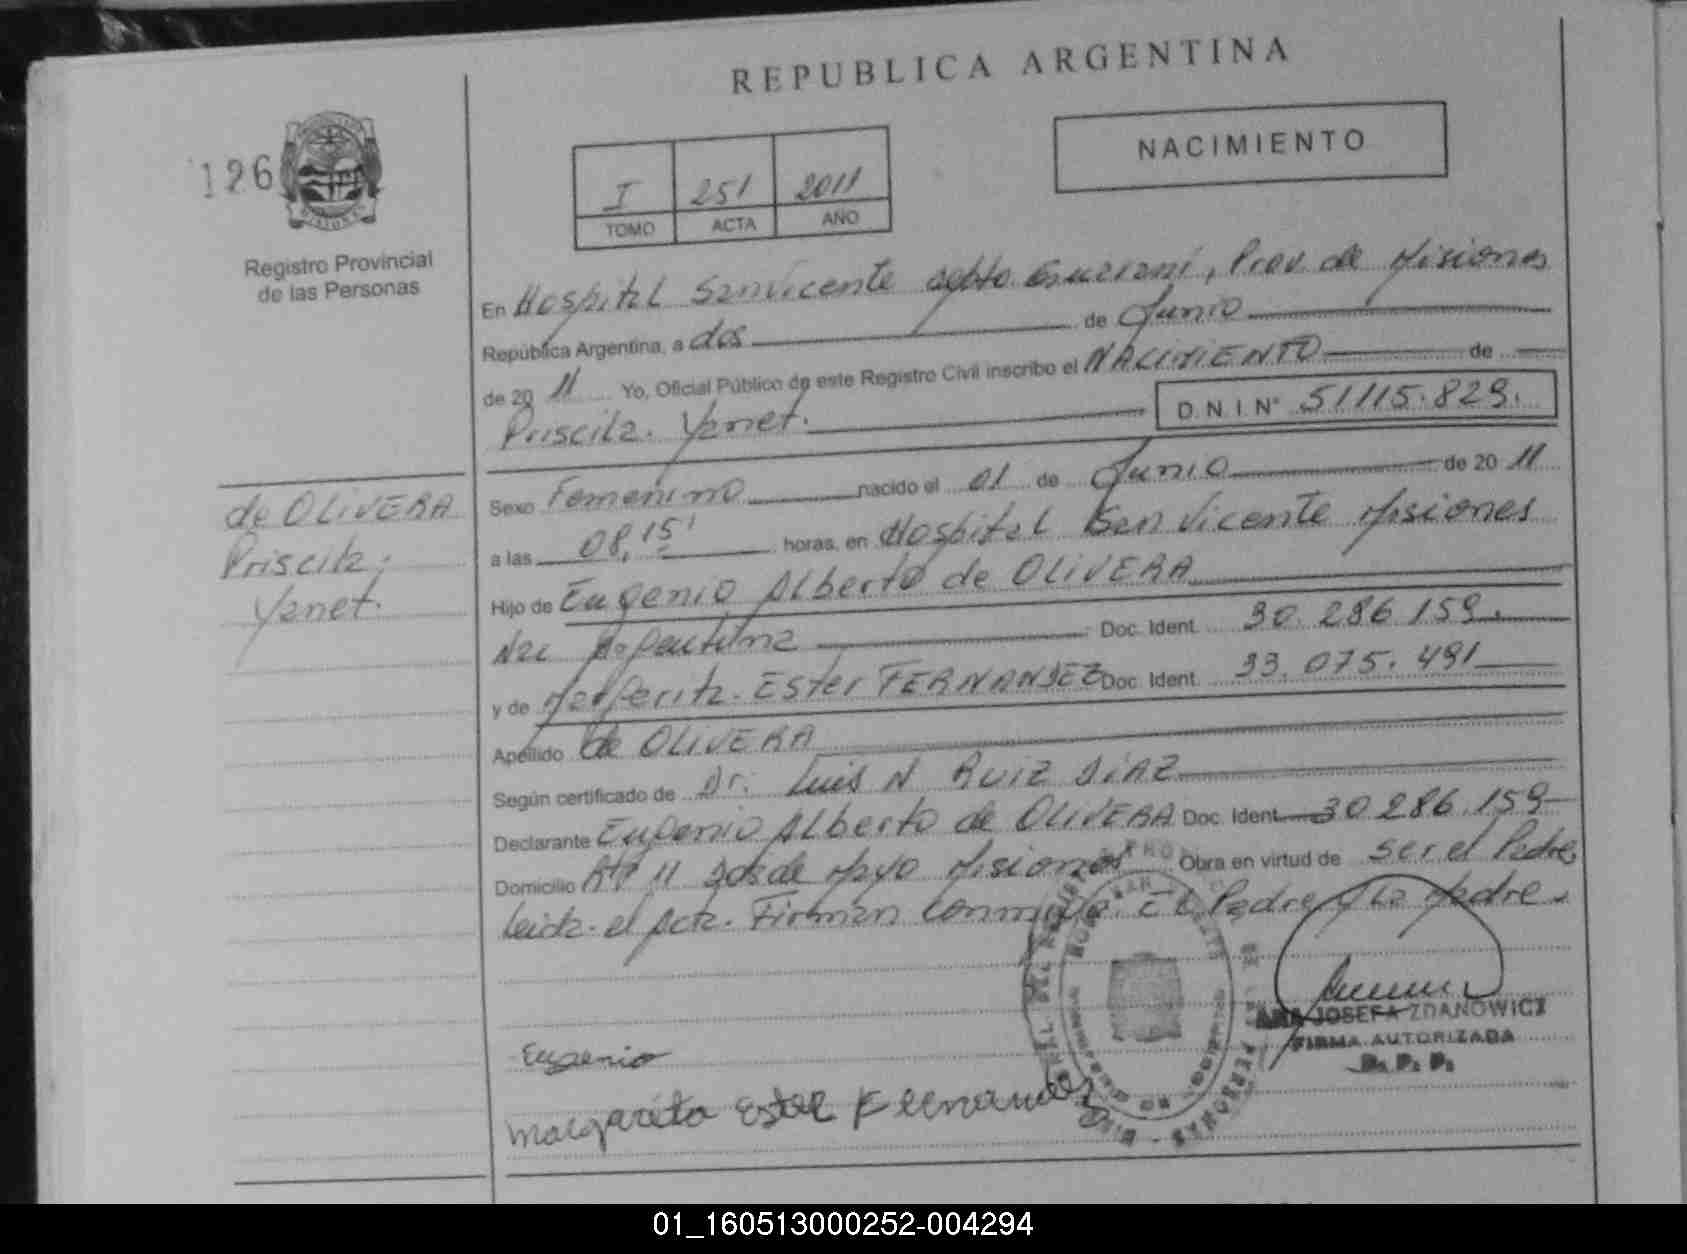 REPUBLICA ARGENTINA
126
NACIMIENTO
I 251 2011
TOMO ACTA AÑO
Registro Provincial
de las Personas
En Hospital San Vicente depto. Guarani, Prov. de Misiones
República Argentina, a dos de Junio
de 20 11 Yo, Oficial Público de este Registro Civil inscribo el NACIMIENTO de
Priscila. Yanet. D.N.I.Nº 51115.829.
de OLIVERA
Priscila.
Yanet.
Sexo Femenino nacido el 01 de Junio de 20 11
a las 08,15' horas, en Hospital San Vicente Misiones
Hijo de Eugenio Alberto de OLIVERA
Nac Argentina Doc. Ident. 30.286.159.
y de Margarita. Ester FERNANDEZ Doc. Ident. 33.075.491
Apellido de OLIVERA
Según certificado de Dr. Luis N RUIZ DIAZ
Declarante Eugenio Alberto de OLIVERA Doc. Ident. 30 286.159
Domicilio 2 de Mayo Misiones Obra en virtud de ser el Padre,
leida. el Acta. Firman conmigo. El Padre y La Madre.
Eugenio
Margarita Ester Fernandez
ANA JOSEFA ZDANOWICZ
FIRMA AUTORIZADA
01_160513000252-004294